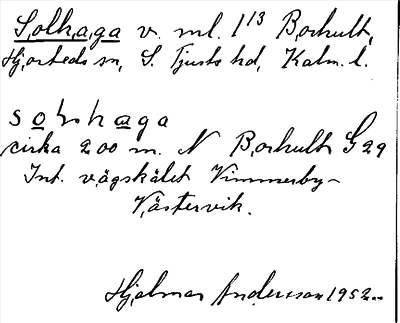 Solhaga v. ml. 1¹³ Borhult,
Hjorteds sn, S. Tjusts hd, Kalm. l.
solhaga
cirka 200 m. N Borhult G29
Int. vägskälet Vimmerby-
Västervik.
Hjalmar Andersson 1952